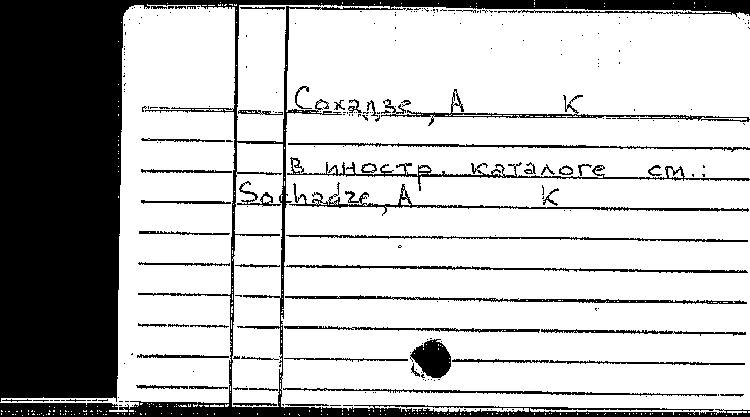 Сохадзе, А К
В иностр. каталоге см.:
Sochadze, A K